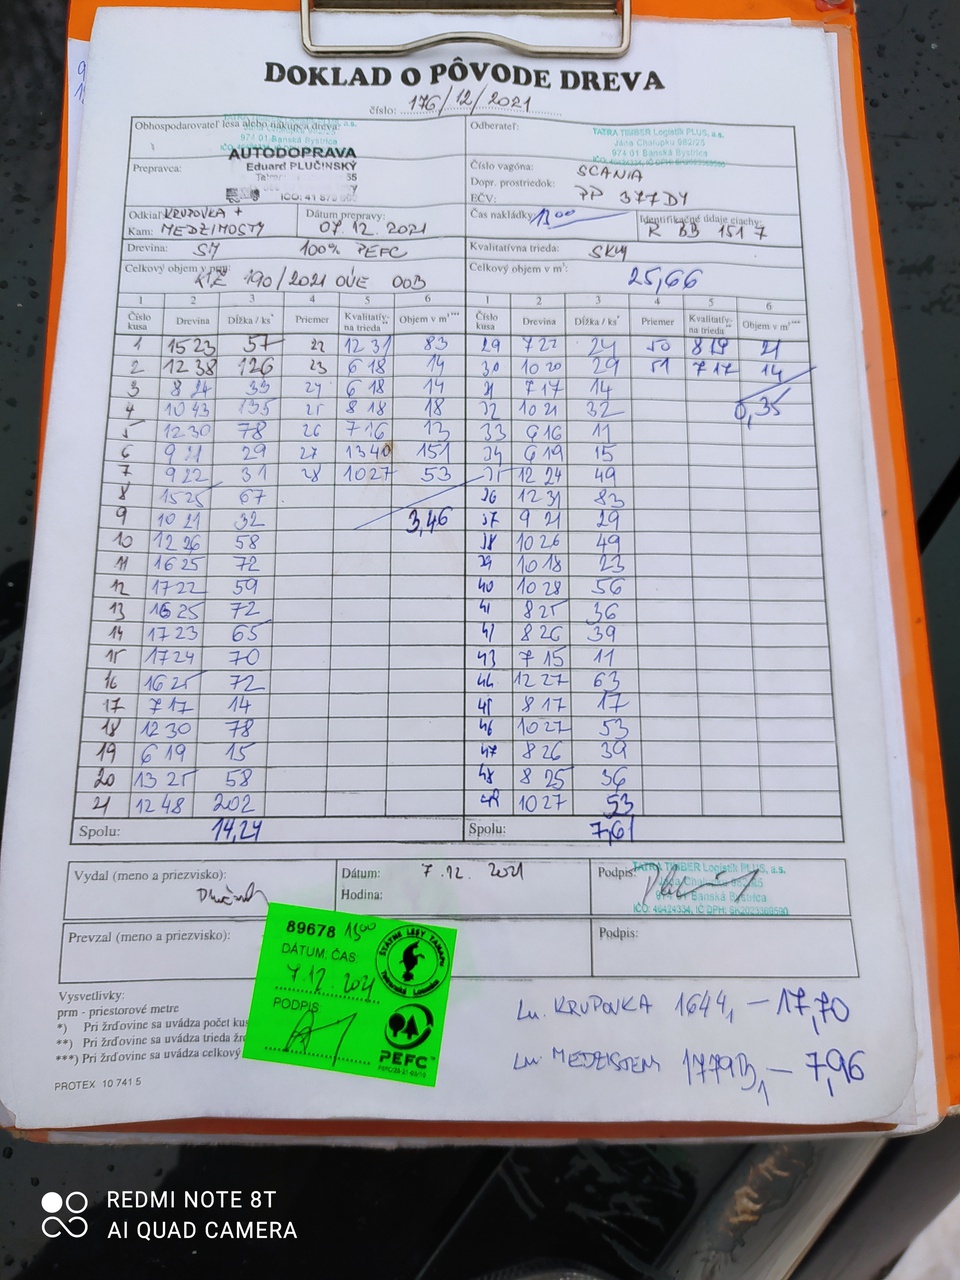 DOKLAD O PÔVODE DREVA
číslo: 176/12/2021
Obhospodarovateľ lesa alebo nákupca dreva:
Odberateľ:
TATRA TIMBER Logistik PLUS, a.s.
Jána Chalupku 982/25
974 01 Banská Bystrica
974 01 Banská Bystrica
Prepravca:
AUTODOPRAVA
Eduard PLUČINSKÝ
Číslo vagóna:
SCANIA
Dopr. prostriedok:
EČV: PP 377DY
Odkiaľ: KRUPOVKA +
Kam: MEDZIMOSTY
Dátum prepravy:
07.12.2021
Čas nakládky: 1300
Identifikačné údaje ciachy:
R BB 1517
Drevina: SM 100% PEFC
Kvalitatívna trieda: SKM
Celkový objem v prm:
190/2021 OÚE OOB
Celkový objem v m³: 25,66
1 2 3 4 5 6 1 2 3 4 5 6
Číslo kusa Drevina Dĺžka / ks* Priemer Kvalitatív- na trieda** Objem v m³*** Číslo kusa Drevina Dĺžka / ks* Priemer Kvalitatív- na trieda** Objem v m³***
1 15 23 57 22 12 31 83 29 7 22 24 50 8 19 21
2 12 38 126 23 6 18 14 30 10 20 29 51 7 17 14
3 8 24 33 24 6 18 14 31 7 17 14
4 10 43 135 25 8 18 18 32 10 21 32 0,35
5 12 30 78 26 7 16 13 33 9 16 11
6 9 21 29 27 13 40 151 34 6 19 15
7 9 22 31 28 10 27 53 35 12 24 49
8 15 25 67 36 12 31 83
9 10 21 32 3,46 37 9 21 29
10 12 26 58 38 10 26 49
11 16 25 72 39 10 18 23
12 17 22 59 40 10 28 56
13 16 25 72 41 8 25 36
14 17 23 65 42 8 26 39
15 17 24 70 43 7 15 11
16 16 25 72 44 12 27 63
17 7 17 14 45 8 17 17
18 12 30 78 46 10 27 53
19 6 19 15 47 8 26 39
20 13 25 58 48 8 25 36
21 12 48 202 49 10 27 53
Spolu: 14,24 Spolu: 7,61
Vydal (meno a priezvisko):
Dátum: 7.12.2021
Hodina:
Podpis:
TATRA TIMBER Logistik PLUS, a.s.
974 01 Banská Bystrica
Prevzal (meno a priezvisko):
Podpis:
89678 1300
DÁTUM, ČAS:
7.12.2021
PODPIS:
ŠTÁTNE LESY TANAPU
Tatranská Lomnica
PEFC™
Vysvetlivky:
prm - priestorové metre
*) Pri žrďovine sa uvádza počet kus
**) Pri žrďovine sa uvádza trieda žr
***) Pri žrďovine sa uvádza celkový
PROTEX 10 741 5
Lu. KRUPOVKA 1644 1 — 17,70
Lu. MEDZISTEM 1779B 1 — 7,96
REDMI NOTE 8T
AI QUAD CAMERA